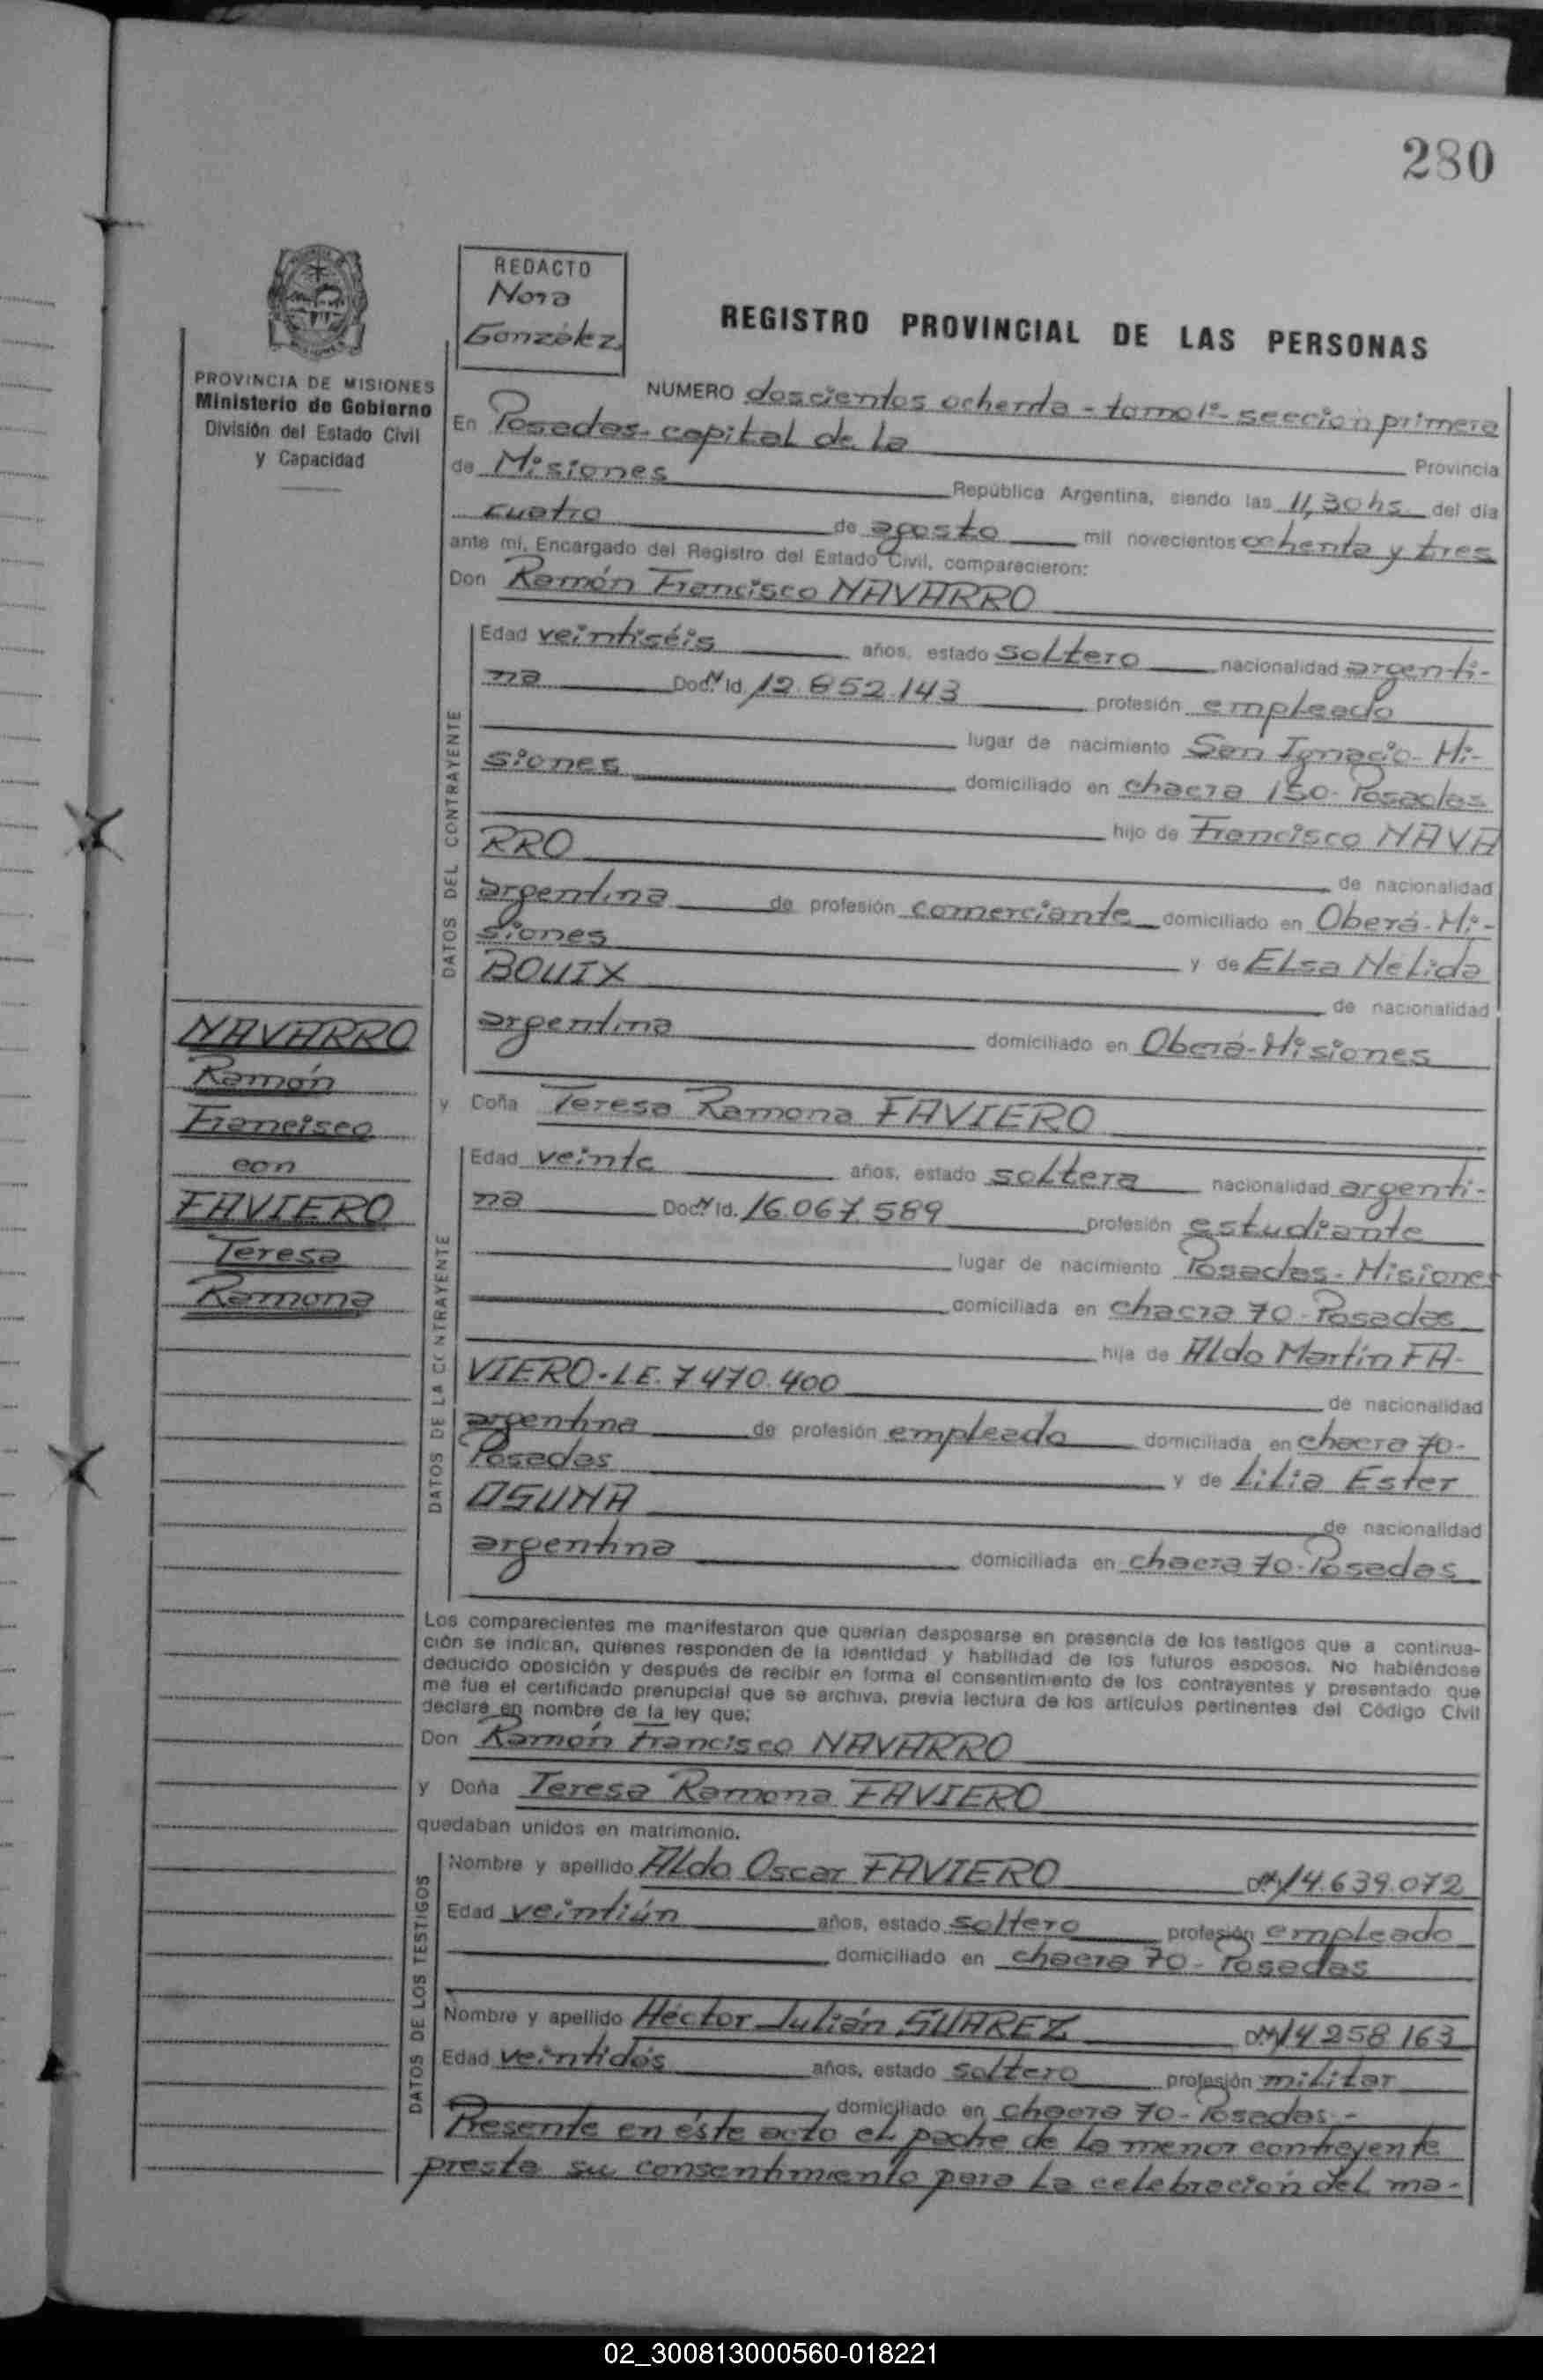 280
REDACTO
Nora
González
REGISTRO PROVINCIAL DE LAS PERSONAS
PROVINCIA DE MISIONES
Ministerio de Gobierno
División del Estado Civil
y Capacidad
NUMERO doscientos ochenta - tomo 1º - sección primera
En Posadas - capital de la Provincia
de Misiones República Argentina, siendo las 11,30 hs. del día
cuatro de agosto mil novecientos ochenta y tres
ante mí, Encargado del Registro del Estado Civil, comparecieron:
Don Ramón Francisco NAVARRO
DATOS DEL CONTRAYENTE
Edad veintiséis años, estado soltero nacionalidad argenti-
na Doc. Nº Id. 12.852.143 profesión empleado
lugar de nacimiento San Ignacio - Mi-
siones domiciliado en chacra 150 - Posadas
hijo de Francisco NAVA
RRO de nacionalidad
argentina de profesión comerciante domiciliado en Oberá - Mi-
siones y de Elsa Nelida
BOUIX de nacionalidad
argentina domiciliado en Oberá - Misiones
NAVARRO
Ramón
Francisco
con
FAVIERO
Teresa
Ramona
y Doña Teresa Ramona FAVIERO
DATOS DE LA CONTRAYENTE
Edad veinte años, estado soltera nacionalidad argenti-
na Doc. Nº Id. 16.067.589 profesión estudiante
lugar de nacimiento Posadas - Misiones
domiciliada en chacra 70 - Posadas
hija de Aldo Martín FA-
VIERO - L.E. 7470.400 de nacionalidad
argentina de profesión empleado domiciliada en chacra 70 -
Posadas y de Lilia Ester
OSUNA de nacionalidad
argentina domiciliada en chacra 70 - Posadas
Los comparecientes me manifestaron que querían desposarse en presencia de los testigos que a continua-
ción se indican, quienes responden de la identidad y habilidad de los futuros esposos. No habiéndose
deducido oposición y después de recibir en forma el consentimiento de los contrayentes y presentado que
me fue el certificado prenupcial que se archiva, previa lectura de los artículos pertinentes del Código Civil
declaré en nombre de la ley que:
Don Ramón Francisco NAVARRO
y Doña Teresa Ramona FAVIERO
quedaban unidos en matrimonio.
DATOS DE LOS TESTIGOS
Nombre y apellido Aldo Oscar FAVIERO 14.639.072
Edad veintiún años, estado soltero profesión empleado
domiciliado en chacra 70 - Posadas
Nombre y apellido Héctor Julián SUAREZ 14 258 163
Edad veintidós años, estado soltero profesión militar
domiciliado en chacra 70 - Posadas -
Presente en éste acto el padre de la menor contrayente
presta su consentimiento para la celebración del ma-
02_300813000560-018221